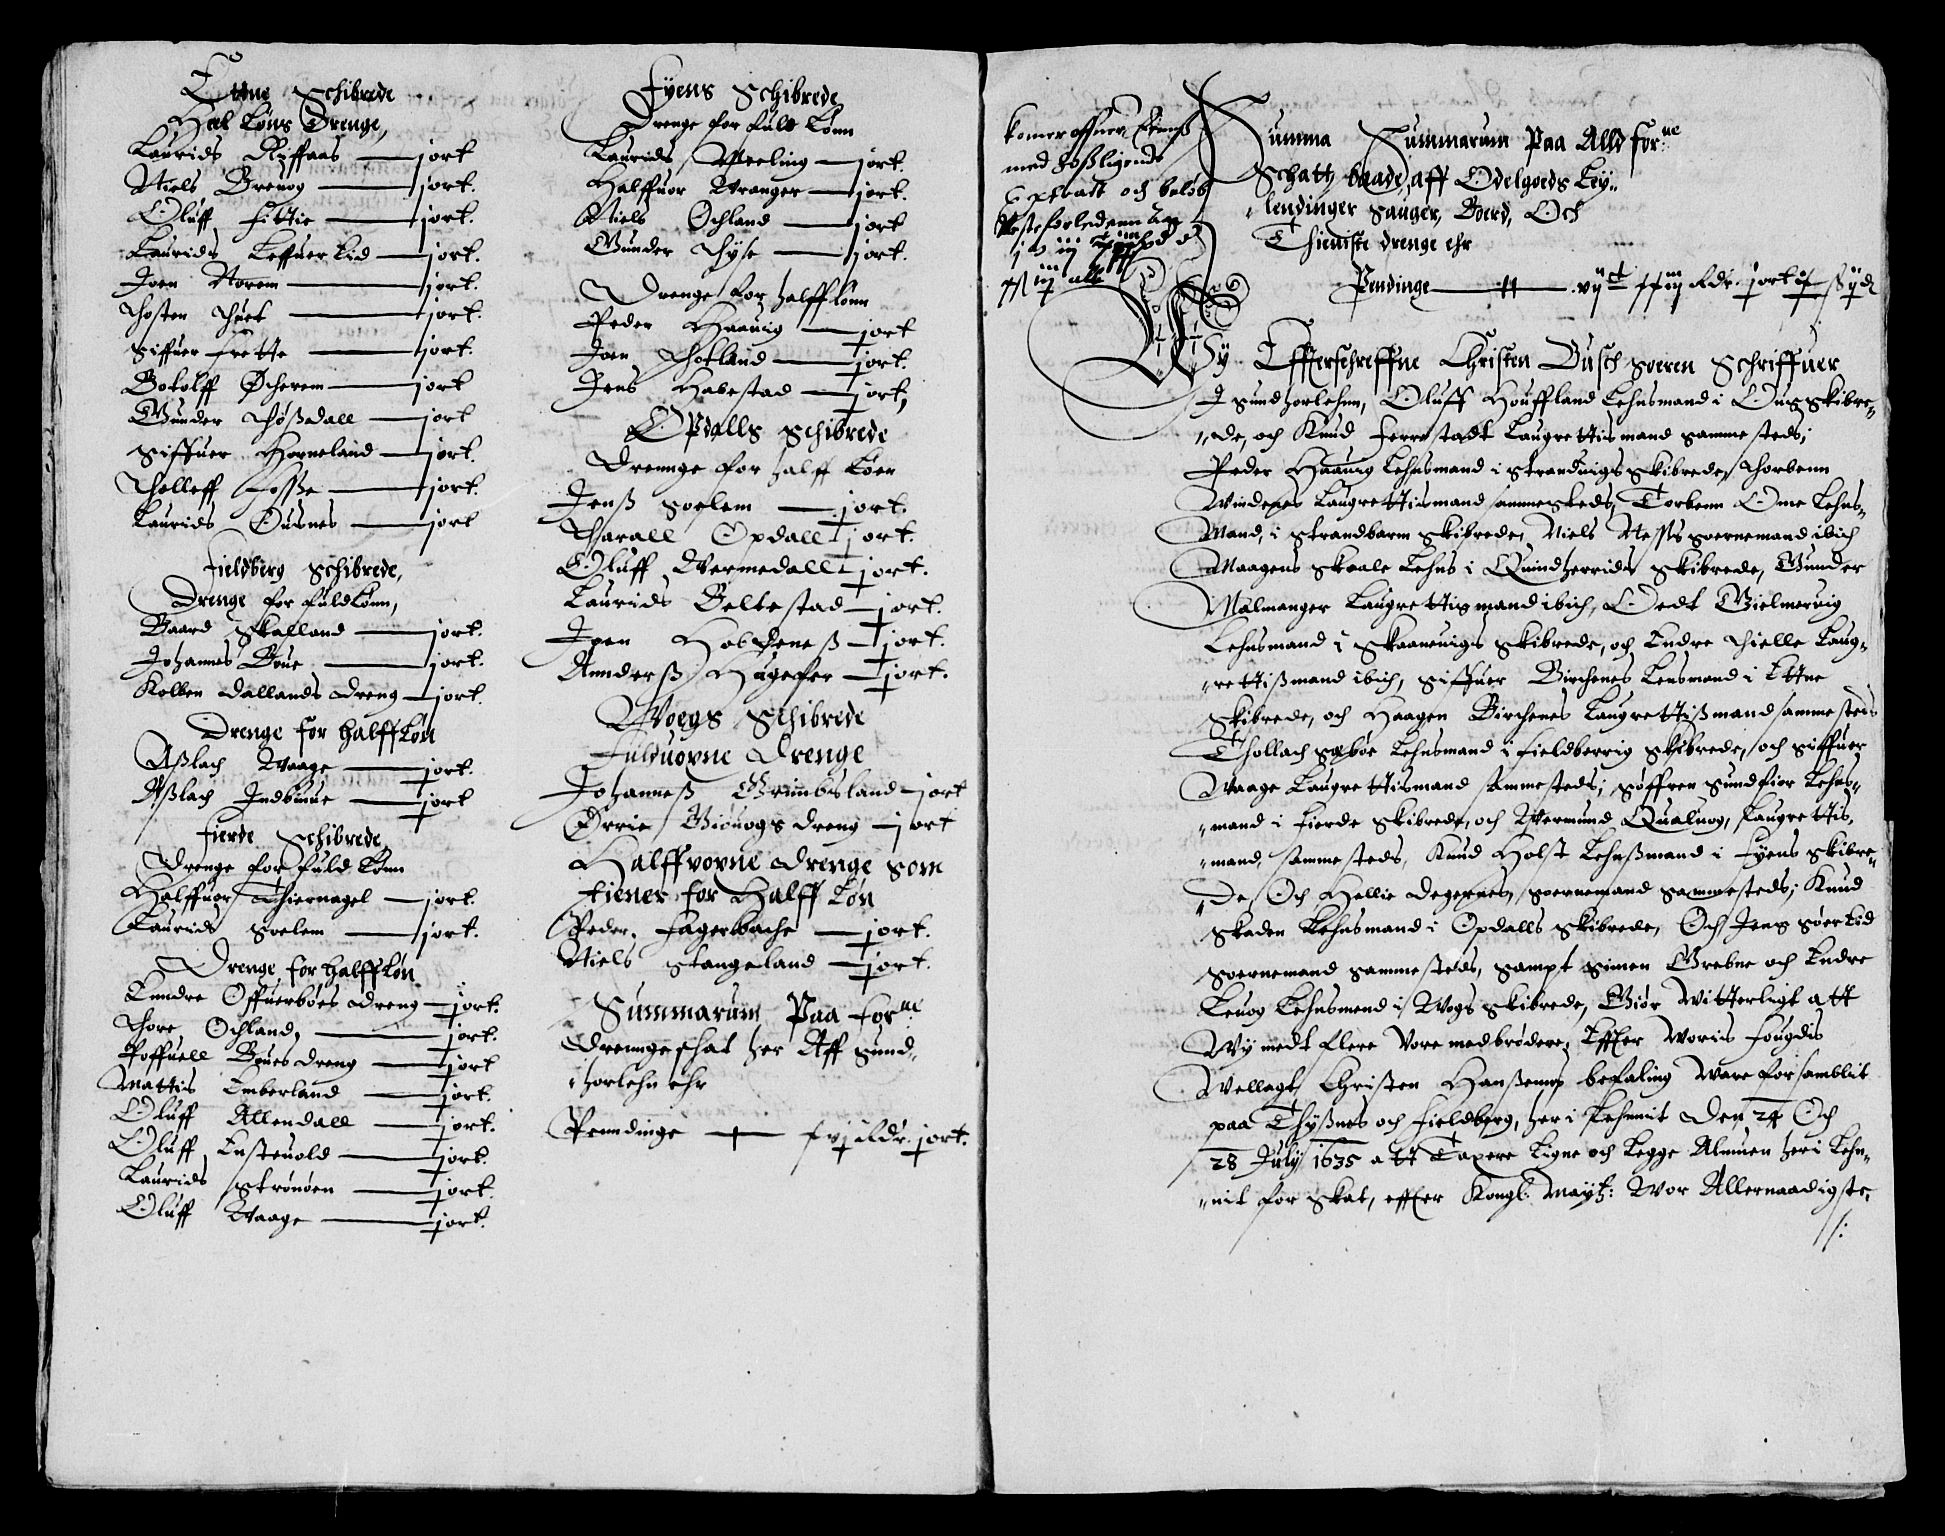 Ettne Schibrede
Heel Løns Drenge,
Laurids Ryffaas — j ort
Niels Grenog — j ort.
Oluff Fittie — j ort.
Laurids Leffuer Eid — j ort.
Joen Norem — j ort.
Thosten Thuet — j ort.
Siffuer Frette — j ort.
Botolff Ocherem — j ort
Gunder Thøßdall — j ort
Siffuer Horneland — j ort.
Tholleff Fosse — j ort.
Laurids Ousnes — j ort
Fieldberg Schibrede,
Drenge for fuld Lønn,
Baard Skalland — j ort.
Johannes Boue — j ort.
Kolben Dallands dreng — j ort.
Drenge for halff Løn
Aßlach Waage — j ort.
Aßlach Indbiuue — j ort
Fierde Schibrede
Drenge for fuld Lønn
Halffuor Thiernagel — j ort.
Laurids Soelem — j ort.
Drenge for halff Løn
Enndre Offuerbøes dreng — j ort.
Thore Ochland, — j ort.
Poffuell Boues dreng — j ort
Mattis Emberland — j ort.
Oluff Allendall — j ort.
Oluff Eusteuold — j ort.
Laurids Strønøen — j ort.
Oluff Waage — j ort.
Fyens Schibrede
Drenge for fuld Lønn
Laurids Meeling — j ort.
Halffuor Wranger — j ort.
Niels Ochland — j ort
Gunder Thyse — j ort.
Drenge for halff lønn
Peder Haauig — j ort
Joen Thotland — j ort.
Jens Habestad — j ort,
Opdalls Schibrede
Drennge for halff Løen
Jenß Soelem — j ort.
Tharall Opdall j ort.
Oluff Wermedall j ort.
Laurids Beltestad — j ort.
Joen Hobscheneß — j ort.
Annderß Hugeger — j ort.
Woegs Schibrede
Fulduoxne Drenge
Johanneß Grimbsland — j ort
Ørrie Biønogs dreng — j ort
Halffvoxne drenge som
tiener for Halff Løn
Peder Fagerbache — j ort.
Niels Stangeland — j ort.
Summarum Paa for:ne
drennge schat her Aff Sund,
horlehn ehr
Penndinge — j ort.
komer offuer
med
och beløb
alle
Summa Summarum Paa Alld for:ne
Schatt, baade aff Odelgoeds Ley,,
,,lendinger Sauger, Boerd, Och
Thieniste drenge ehr
Pendinge — j ort
Wy Effterschreffne Christen Busch Soeren Schriffuer
I Sundhorlehnn, Oluff Houffland Lehnsmand i Ous Skibre,,
,,de, och Knud Ferrestadt Laugrettis mand samme steds;
Peder Haauig Lehnsmand i Strandvigs Skibrede, Thorbenn
Windenes Laugrettismand sammesteds, Torbenn Ome Lehns,,
Mand, i Strandbarm Skibrede, Niels Nesss Soernemand ibid
Maagens Skaale Lehns i Quindherrids Skibrede, Gunder
Malmanger Laugrettismand ibid, Oedt Gielmervig
Lehnsmand i Skaanevigs Skibrede, och Endre Thielle Laug,,
,,rettißmand ibid, Siffuer Birchenes Lensmand i Ettne
Skibrede, och Haagen Birchenes Laugrettißmand samme steds
Thollach Sæbøe Lehnsmand i Fieldberrig Skibrede, och Siffuer
Waage Laugrettismand samme steds; Søffren Sundfior Lehns,,
,,mand i Fierde Skibrede, och Wermund Qualuog, Laugrettis,
,,mand, samme steds, Knud Holst Lehnßmand i Fyens Skibre,,
,,De Och Hellie Degernes, Soernemand sammesteds; Knud
Skaden Lehnsmand i Opdalls Skibrede, Och Jens Søer Eid
Soernemand samme steds, sampt Simen Grebne och Endre
Leuog Lehnsmend i Wogs Skibrede, Giør Witterligt att
Wy medt flere Vore medbrødere, Effter Woris Fougdis
Wellagt Christen Hanßenns befaling Ware forsamblit
paa Thyßnes och Fieldberg, her i Lehnnit Den 24 Och
28 July 1635 att Taxere Ligne och Legge Almuen her i Lehn,,
,,nit for Skat, effter Kongl: Maytz: Wor Allernaadigste,
/: